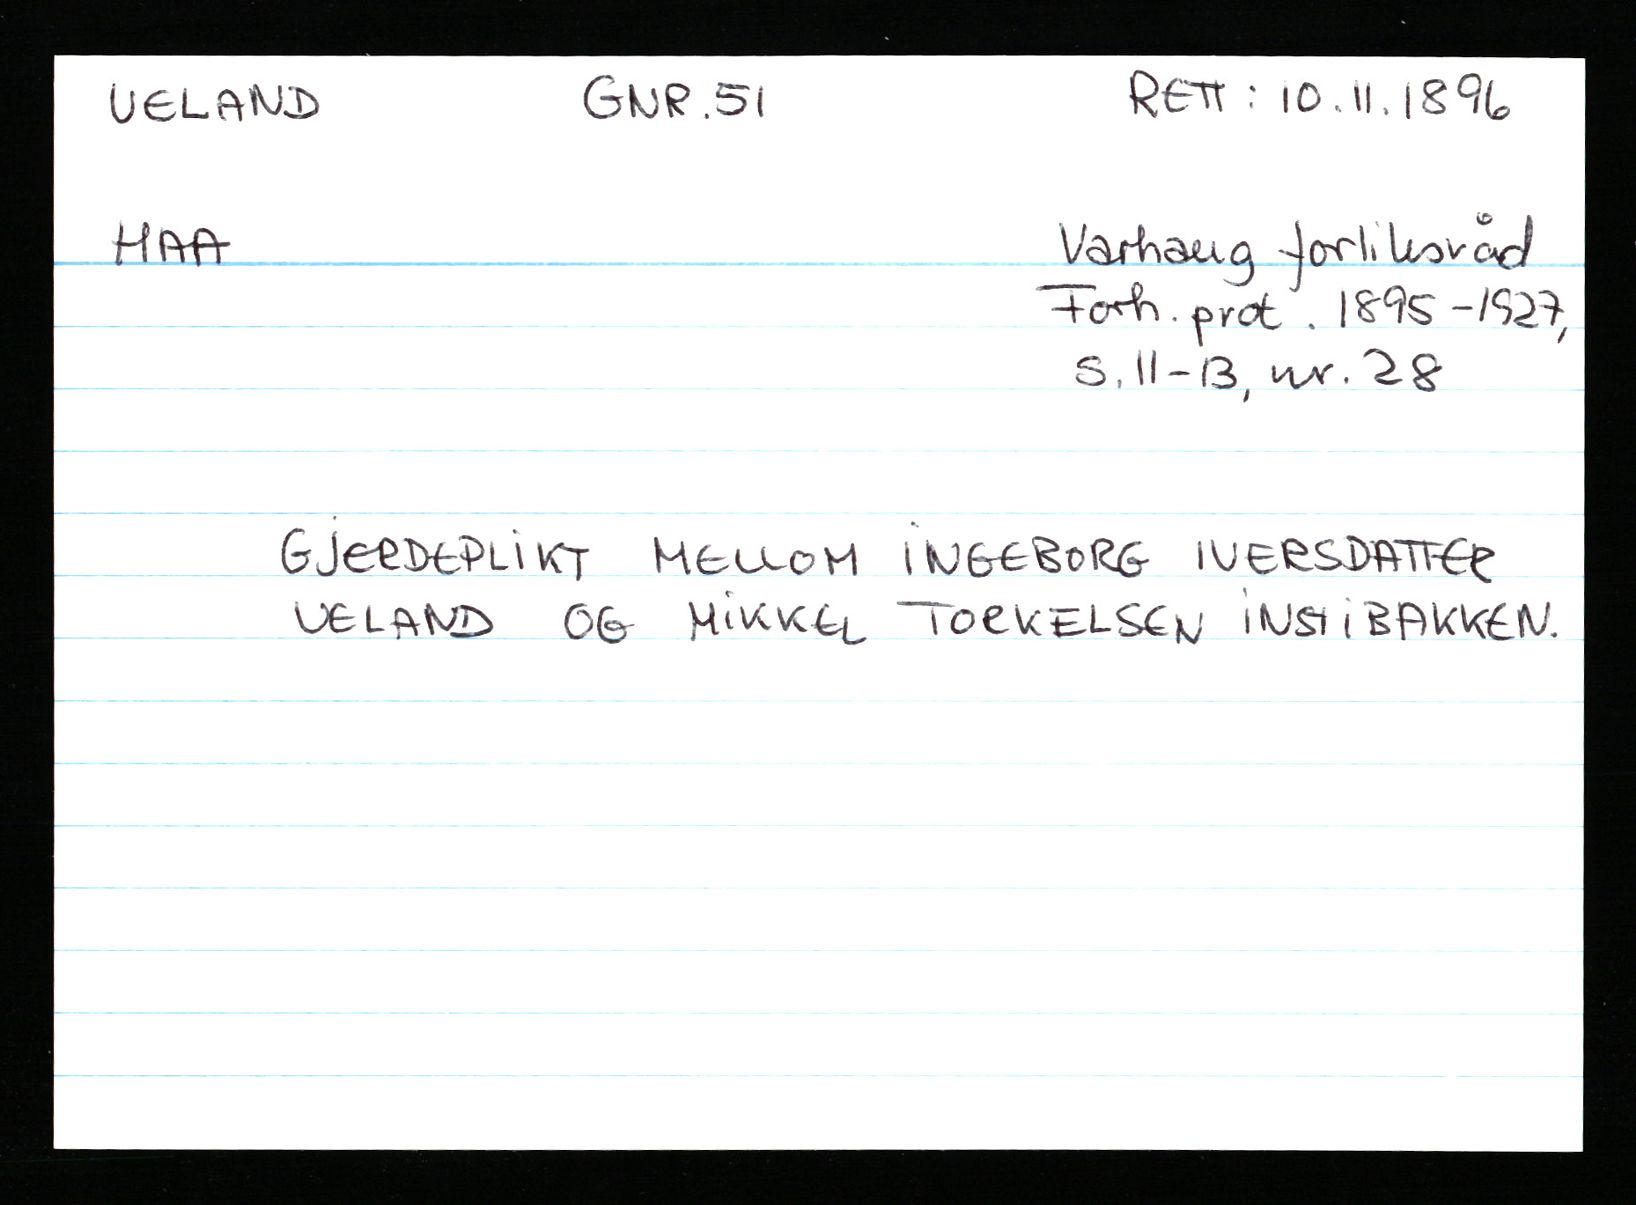 VELAND GNR.51 RETT: 10.11.1896
HAA Varhaug forliksråd
Forh. prot. 1895-1927,
S. 11-13, nr. 28
GJERDEPLIKT MELLOM INGEBORG IVERSDATTER
VELAND OG MIKKEL TORKELSEN INSTIBAKKEN.